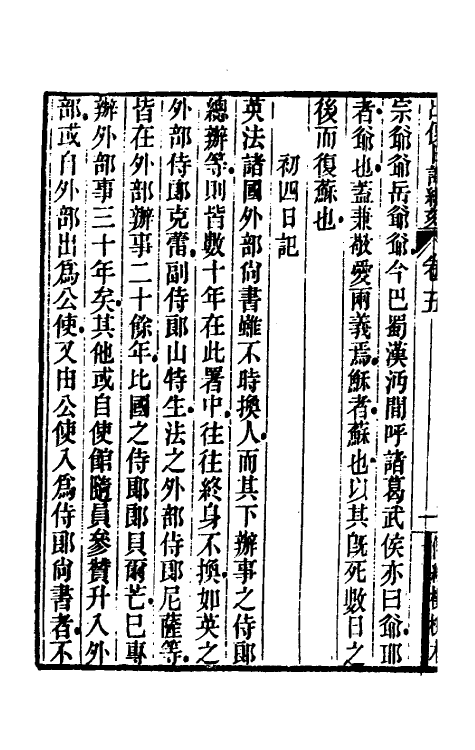 宗爺爺岳爺爺今巴蜀漢沔間呼諸葛武侯亦曰爺耶
者爺也蓋兼敬愛兩義焉穌者蘇也以其旣死數日之
後而復蘇也
初四日記
英法諸國外部尙書雖不時換人而其下辦事之侍郎
總辦等則皆數十年在此署中往往終身不換如英之
外部侍郎克蕾副侍郎山特生法之外部侍郎尼薩等
皆在外部辦事二十餘年比國之侍郎郎貝爾芒巳專
辦外部事三十年矣其他或自使館隨員參贊升入外
部或自外部出爲公使又由公使入爲侍郎尙書者不